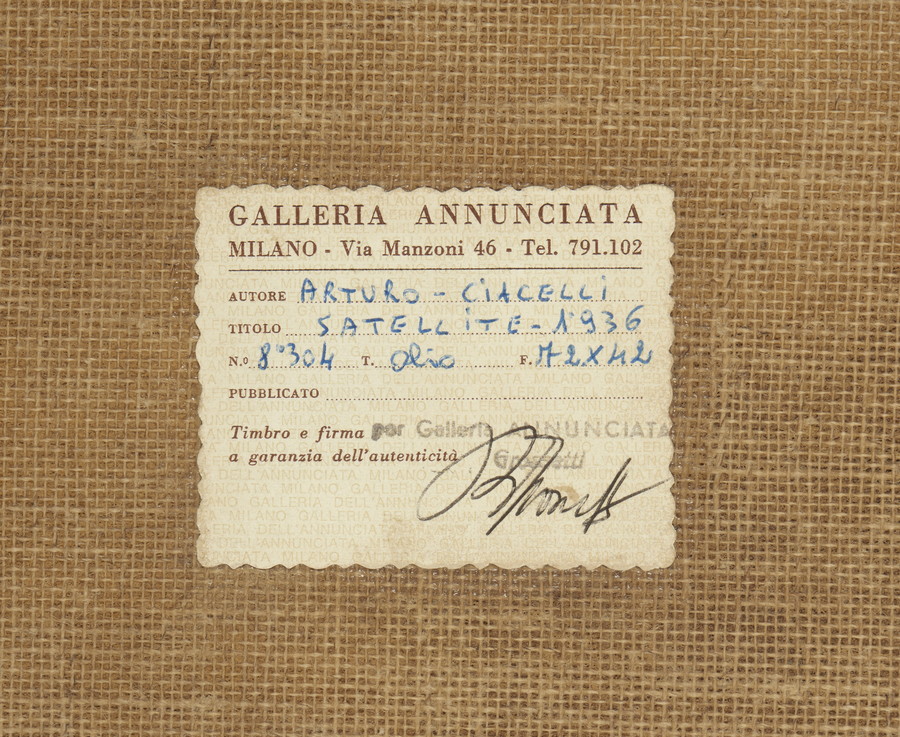 GALLERIA ANNUNCIATA
MILANO - Via Manzoni 46 - Tel. 791.102
AUTORE ARTURO - CIACELLI
TITOLO SATELLITE - 1936
N.o 8°304 T. Olio F. 72X42
PUBBLICATO
Timbro e firma per Galleria ANNUNCIATA
a garanzia dell'autenticità Grossetti